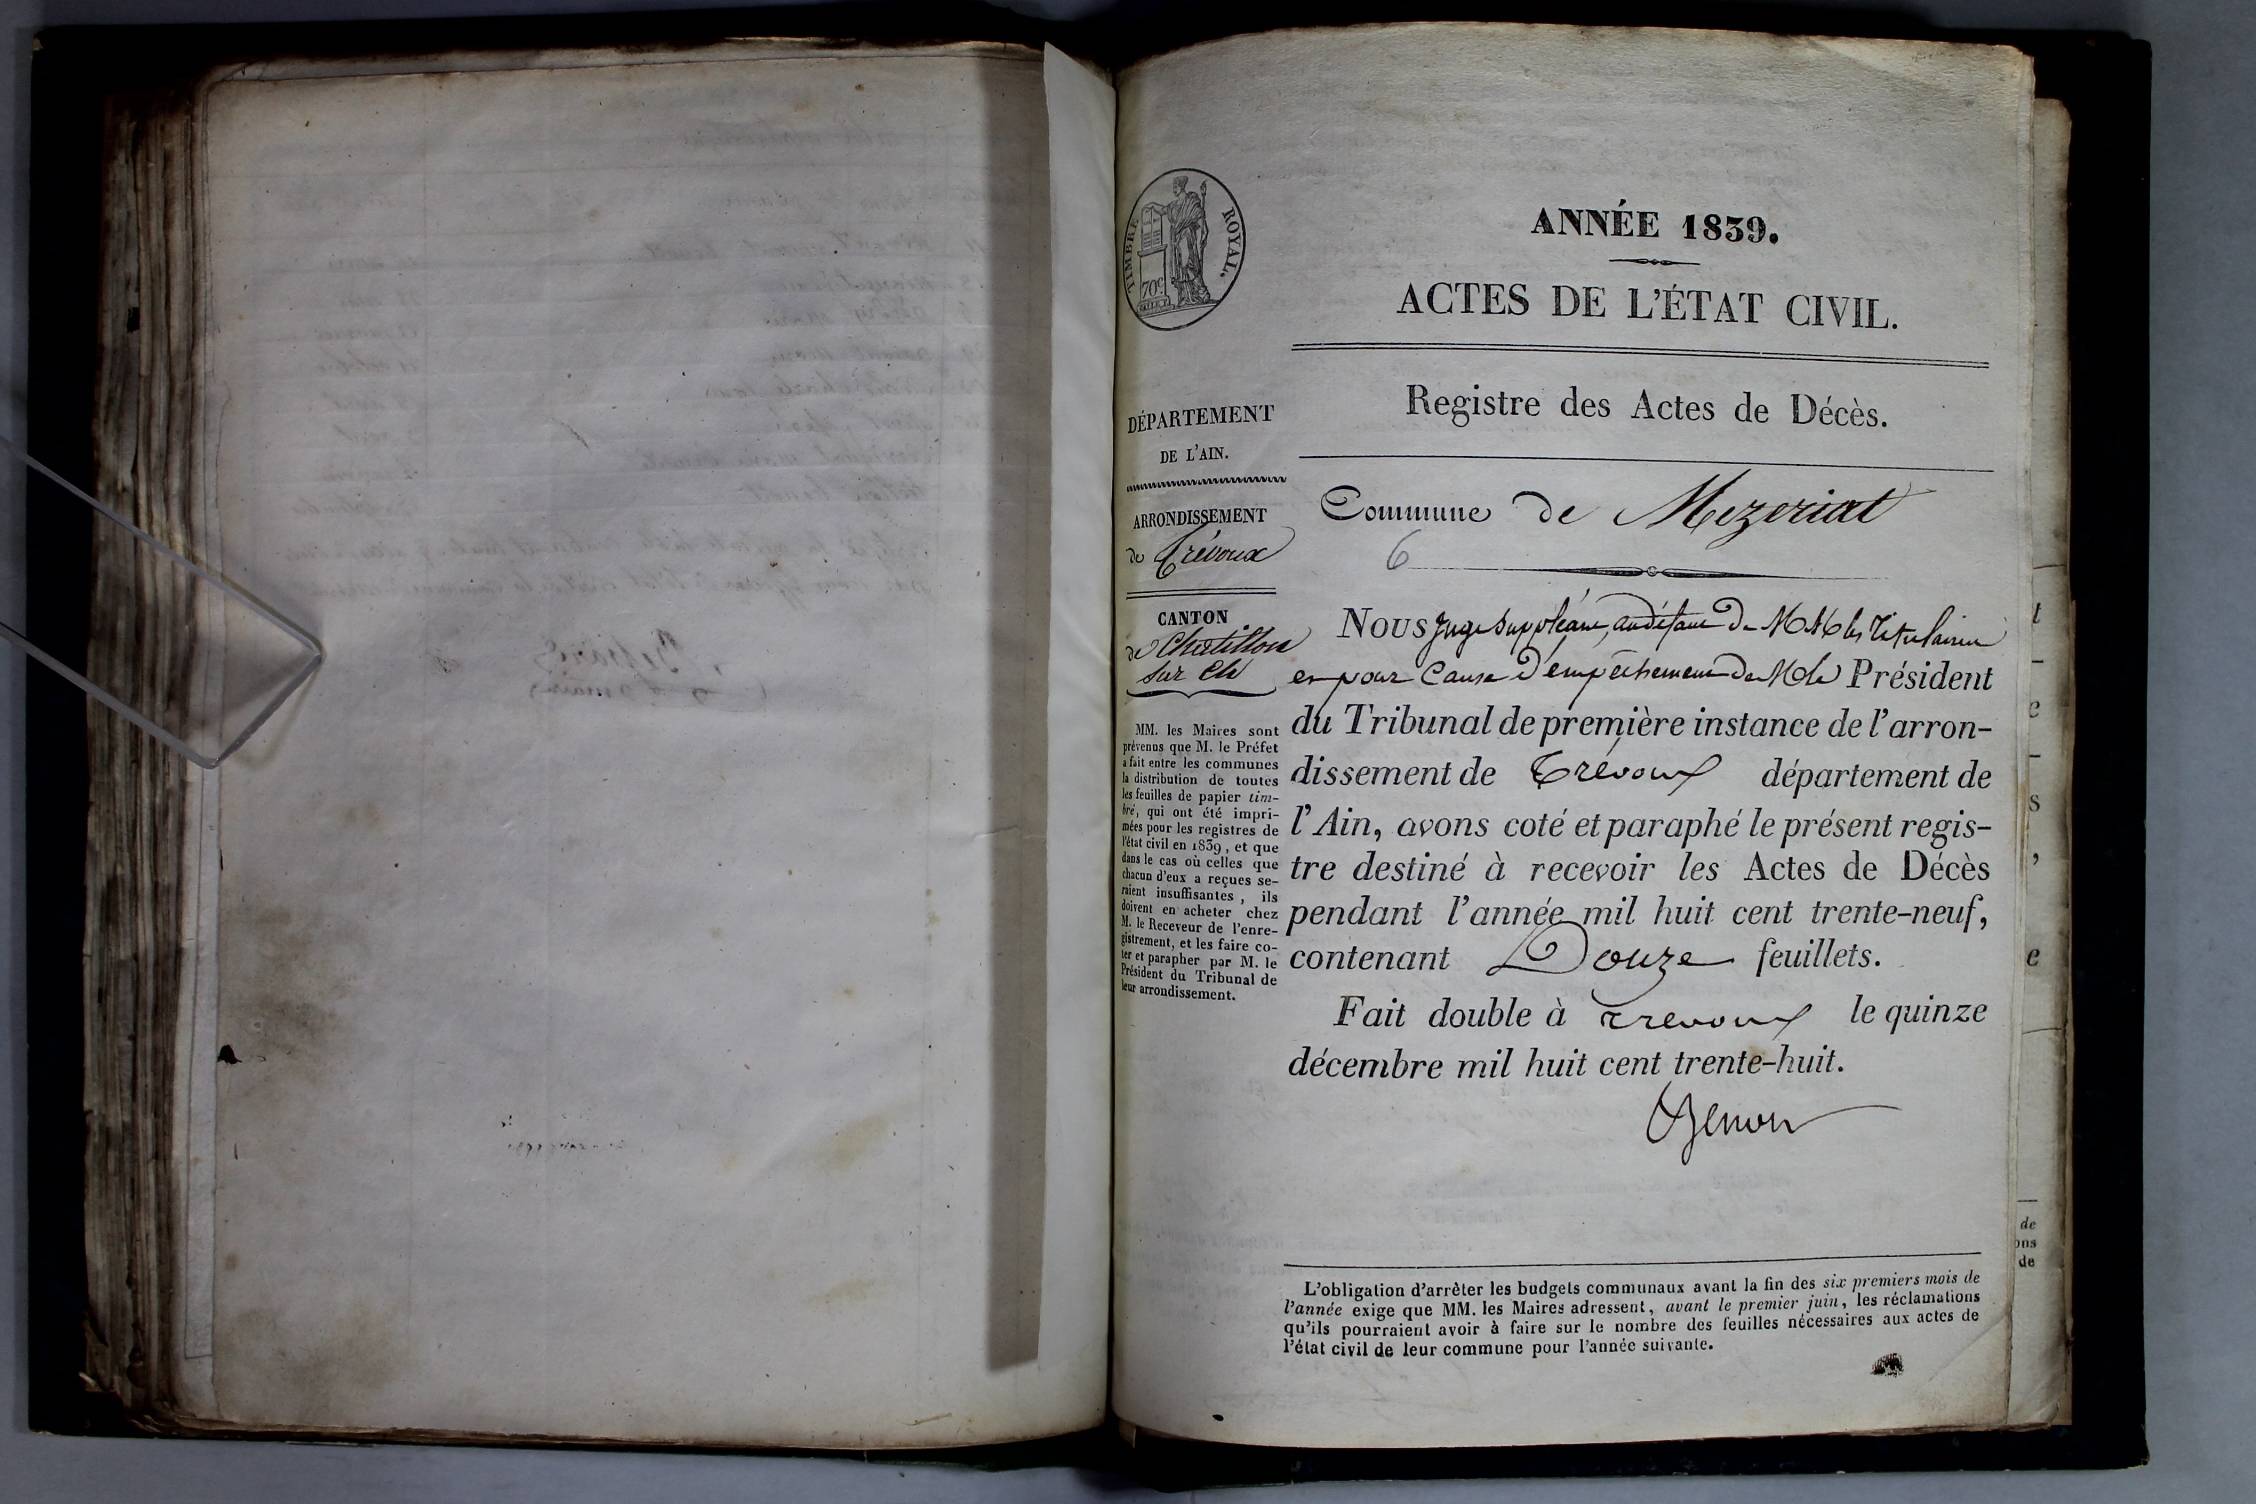 TIMBRE ROYAL.
70c
ANNÉE 1839.
ACTES DE L'ÉTAT CIVIL.
Registre des Actes de Décès.
DÉPARTEMENT
DE L'AIN.
ARRONDISSEMENT
de Trévoux
CANTON
de Chatillon
sur
MM. les Maires sont
prévenus que M. le Préfet
a fait entre les communes
la distribution de toutes
les feuilles de papier tim-
bré, qui ont été impri-
mées pour les registres de
l'état civil en 1839, et que
dans le cas où celles que
chacun d'eux a reçues se-
raient insuffisantes, ils
doivent en acheter chez
M. le Receveur de l'enre-
gistrement, et les faire co-
ter et parapher par M. le
Président du Tribunal de
leur arrondissement.
Commune de Mezeriat
6
NOUS Juge Suppléant, au défaut De MM les Titulaires
et pour Cause D'empêchement De M le Président
du Tribunal de première instance de l'arron-
dissement de Trévoux département de
l'Ain, avons coté et paraphé le présent regis-
tre destiné à recevoir les Actes de Décès
pendant l'année mil huit cent trente-neuf,
contenant Douze feuillets.
Fait double à Trevoux le quinze
décembre mil huit cent trente-huit.
L'obligation d'arrêter les budgets communaux avant la fin des six premiers mois de
l'année exige que MM. les Maires adressent, avant le premier juin, les réclamations
qu'ils pourraient avoir à faire sur le nombre des feuilles nécessaires aux actes de
l'état civil de leur commune pour l'année suivante.
t
e
s
,
e
de
ons
de